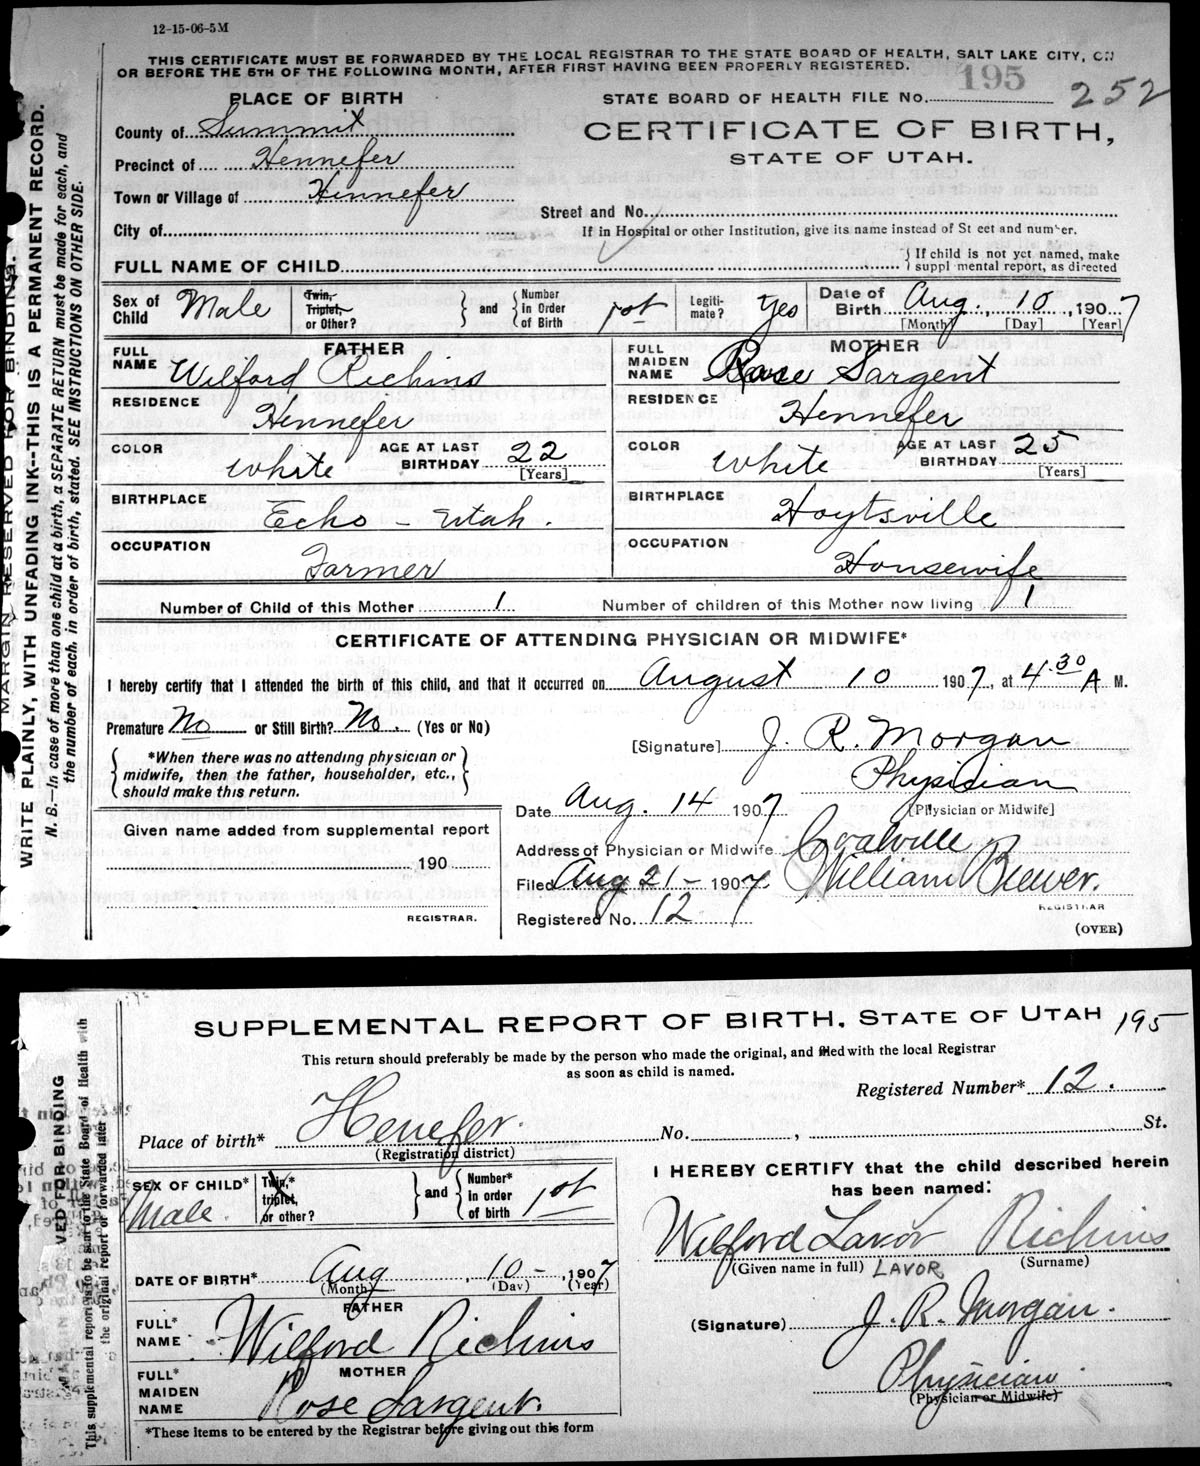 12-15-06-5M
THIS CERTIFICATE MUST BE FORWARDED BY THE LOCAL REGISTRAR TO THE STATE BOARD OF HEALTH, SALT LAKE CITY, ON
OR BEFORE THE 5TH OF THE FOLLOWING MONTH, AFTER FIRST HAVING BEEN PROPERLY REGISTERED.
PLACE OF BIRTH
STATE BOARD OF HEALTH FILE No. 195 252
County of Summit
CERTIFICATE OF BIRTH,
STATE OF UTAH.
Precinct of Hennefer
Town or Village of Hennefer
Street and No.
City of
If in Hospital or other Institution, give its name instead of St eet and number.
FULL NAME OF CHILD
If child is not yet named, make
suppl mental report, as directed
Sex of Child Male
Twin, Triplet, or Other?
and Number in Order of Birth 1st
Legiti-mate? Yes
Date of Birth Aug. 10, 1907
[Month] [Day] [Year]
FATHER
FULL NAME Wilford Richins
RESIDENCE Hennefer
COLOR white AGE AT LAST BIRTHDAY 22 [Years]
BIRTHPLACE Echo - Utah.
OCCUPATION Farmer
MOTHER
FULL MAIDEN NAME Rose Sargent
RESIDENCE Hennefer
COLOR white AGE AT LAST BIRTHDAY 25 [Years]
BIRTHPLACE Hoytsville
OCCUPATION Housewife
Number of Child of this Mother 1 Number of children of this Mother now living 1
CERTIFICATE OF ATTENDING PHYSICIAN OR MIDWIFE*
I hereby certify that I attended the birth of this child, and that it occurred on August 10 1907, at 4.30 A M.
Premature No or Still Birth? No. (Yes or No)
[Signature] J. R. Morgan
*When there was no attending physician or
midwife, then the father, householder, etc.,
should make this return.
Physician
[Physician or Midwife]
Date Aug. 14 1907
Given name added from supplemental report
190
REGISTRAR.
Address of Physician or Midwife Coalville
Filed Aug 21- 1907 William Brewer.
REGISTRAR
Registered No. 12
(OVER)
MARGIN RESERVED FOR BINDING.
WRITE PLAINLY, WITH UNFADING INK--THIS IS A PERMANENT RECORD.
N. B.-In case of more than one child at a birth, a SEPARATE RETURN must be made for each, and
the number of each, in order of birth, stated. SEE INSTRUCTIONS ON OTHER SIDE.
SUPPLEMENTAL REPORT OF BIRTH, STATE OF UTAH 195
This return should preferably be made by the person who made the original, and filed with the local Registrar
as soon as child is named.
Registered Number* 12.
Place of birth* Henefer. No. , St.
(Registration district)
SEX OF CHILD* Male
Twin,* triplet, or other?
and Number* in order of birth 1st
DATE OF BIRTH* Aug 10-, 1907
(Month) (Day) (Year)
FATHER
FULL* NAME Wilford Richins
MOTHER
FULL* MAIDEN NAME Rose Sargent.
*These items to be entered by the Registrar before giving out this form
I HEREBY CERTIFY that the child described herein
has been named:
Wilford Lavor Richins
(Given name in full) LAVOR (Surname)
(Signature) J. R. Morgan.
Physician
(Physician or Midwife)
VED FOR BINDING
This supplemental report is to be sent to the State Board of Health with
the original report or forwarded later